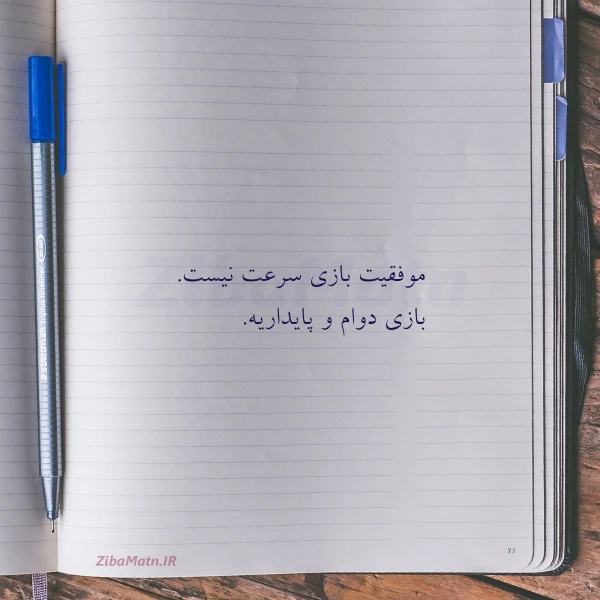 موفقیت بازی سرعت نیست.
بازی دوام و پایداریه.
ZibaMatn
ZibaMatn.IR
77